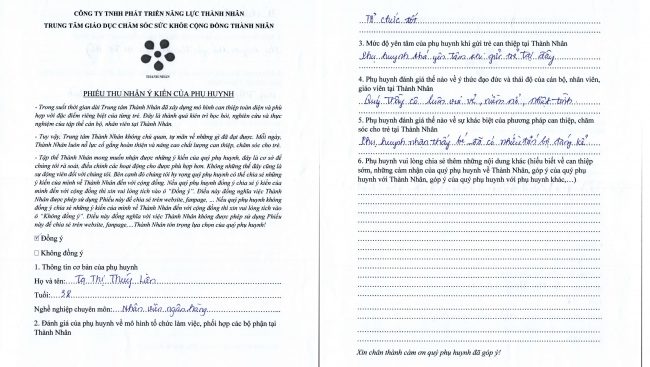 CÔNG TY TNHH PHÁT TRIỂN NĂNG LỰC THÀNH NHÂN
TRUNG TÂM GIÁO DỤC CHĂM SÓC SỨC KHỎE CỘNG ĐỒNG THÀNH NHÂN
THÀNH NHÂN
PHIẾU THU NHẬN Ý KIẾN CỦA PHỤ HUYNH
- Trong suốt thời gian dài Trung tâm Thành Nhân đã xây dựng mô hình can thiệp toàn diện và phù
hợp với đặc điểm riêng biệt của từng trẻ. Đây là thành quả kiên trì học hỏi, nghiên cứu và thực
nghiệm của tập thể cán bộ, nhân viên tại Thành Nhân.
- Tuy vậy, Trung tâm Thành Nhân không chủ quan, tự mãn về những gì đã đạt được. Mỗi ngày,
Thành Nhân luôn nỗ lực cố gắng hoàn thiện và nâng cao chất lượng can thiệp, chăm sóc cho trẻ.
- Tập thể Thành Nhân mong muốn nhận được những ý kiến của quý phụ huynh, đây là cơ sở để
chúng tôi rà soát, điều chỉnh các hoạt động cho được phù hợp hơn. Không những thế đây cũng là
sự động viên đối với chúng tôi. Bên cạnh đó chúng tôi hy vọng quý phụ huynh có thể chia sẻ những
ý kiến của mình về Thành Nhân đến với cộng đồng. Nếu quý phụ huynh đồng ý chia sẻ ý kiến của
mình đến với cộng đồng thì xin vui lòng tích vào ô "Đồng ý". Điều này đồng nghĩa việc Thành
Nhân được phép sử dụng Phiếu này để chia sẻ trên website, fanpage, ... Nếu quý phụ huynh không
đồng ý chia sẻ những ý kiến của mình về Thành Nhân đến với cộng đồng thì xin vui lòng tích vào
ô "Không đồng ý". Điều này đồng nghĩa với việc Thành Nhân không được phép sử dụng Phiếu
này để chia sẻ trên website, fanpage, ...Thành Nhân tôn trọng lựa chọn của quý phụ huynh!
☑ Đồng ý
☐ Không đồng ý
1. Thông tin cơ bản của phụ huynh
Họ và tên: Tạ Thị Thuý Lần
Tuổi: 38
Nghề nghiệp chuyên môn: Nhân viên ngân hàng
2. Đánh giá của phụ huynh về mô hình tổ chức làm việc, phối hợp các bộ phận tại
Thành Nhân
Tổ chức tốt
3. Mức độ yên tâm của phụ huynh khi gửi trẻ can thiệp tại Thành Nhân
Phụ huynh khá yên tâm khi gửi trẻ tại đây
4. Phụ huynh đánh giá thế nào về ý thức đạo đức và thái độ của cán bộ, nhân viên,
giáo viên tại Thành Nhân
Quý thầy cô luôn vui vẻ, niềm nở, nhiệt tình
5. Phụ huynh đánh giá thế nào về sự khác biệt của phương pháp can thiệp, chăm
sóc cho trẻ tại Thành Nhân
Phụ huynh nhận thấy bé đã có nhiều tiến bộ đáng kể
6. Phụ huynh vui lòng chia sẻ thêm những nội dung khác (hiểu biết về can thiệp
sớm, những cảm nhận của quý phụ huynh về Thành Nhân, góp ý của quý phụ
huynh với Thành Nhân, góp ý của quý phụ huynh với phụ huynh khác,...)
Xin chân thành cảm ơn quý phụ huynh đã góp ý!